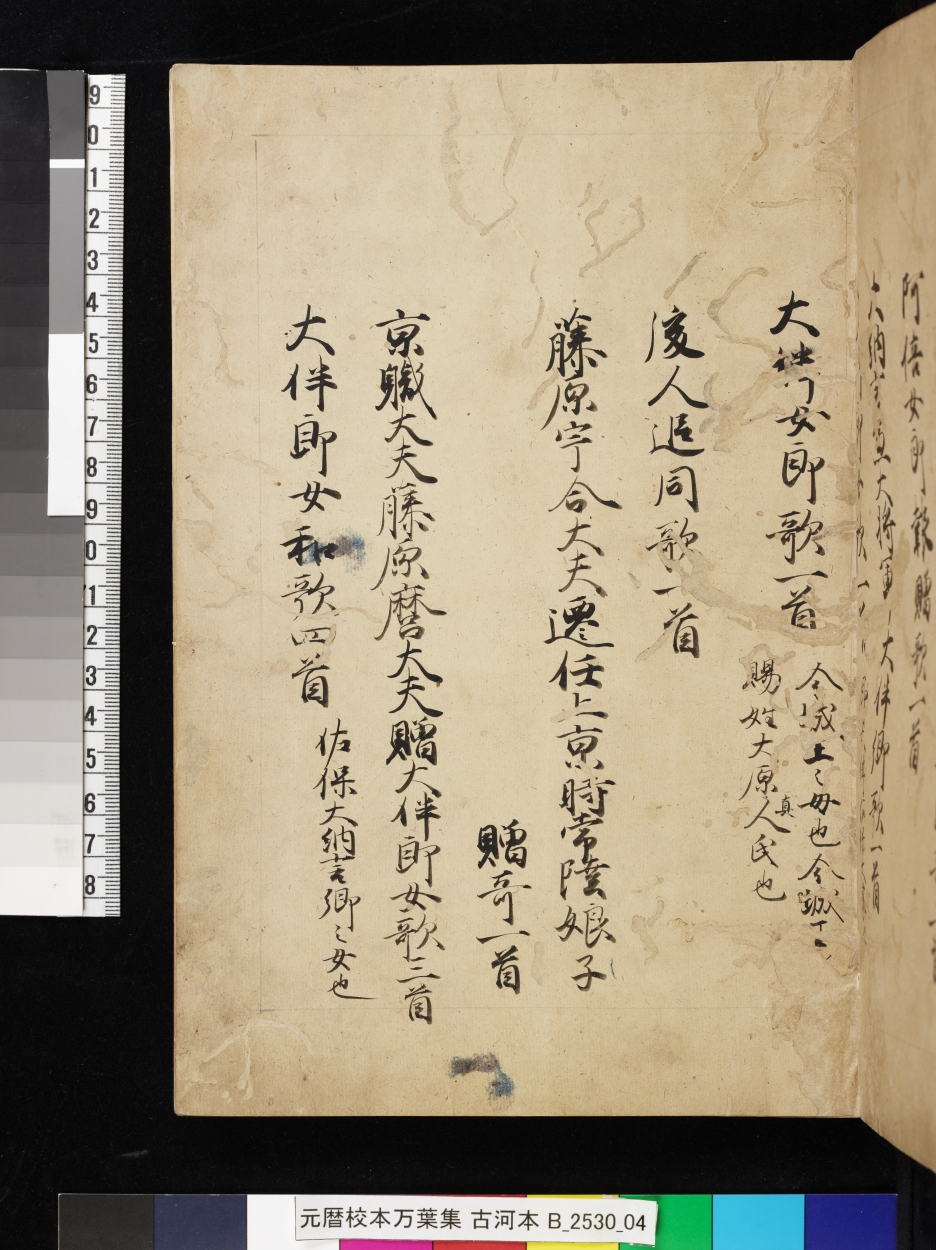 大納言兼大将軍大伴卿歌一首
大伴女郎歌一首
今城王ゝ母也今城王
賜姓大原真人氏也
後人追同歌一首
藤原宇合大夫遷任上京時常陸娘子
贈哥一首
京職大夫藤原麿大夫贈大伴郎女歌三首
大伴郎女和歌四首
佐保大納言卿ゝ女也
9 0 1 2 3 4 5 6 7 8 9 0 1 2 3 4 5 6 7 8
元暦校本万葉集 古河本 B_2530_04